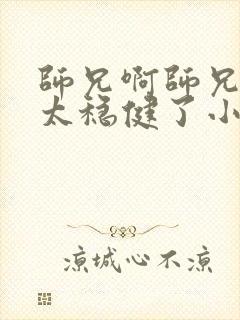 師兄啊師兄
太穩健了小
涼城心不涼